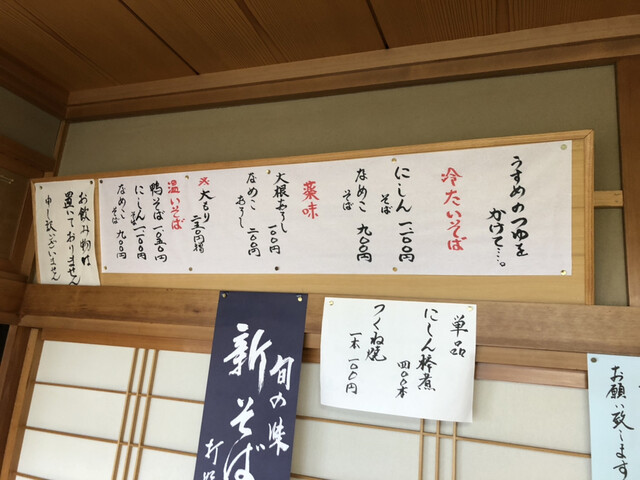 うすめのつゆを
かけて…。
冷たいそば
にしんそば 一一〇〇円
なめこそば 九〇〇円
薬味
大根おろし 一〇〇円
なめこおろし 二〇〇円
大もり 二五〇円増
温いそば
鴨そば 一〇五〇円
にしんそば 一一〇〇円
なめこそば 九〇〇円
お飲み物は
置いておりません
申し訳ございません
旬の味
新そば
単品
にしん棒煮
四〇〇円
つくね焼
一本 一〇〇円
お願い致します